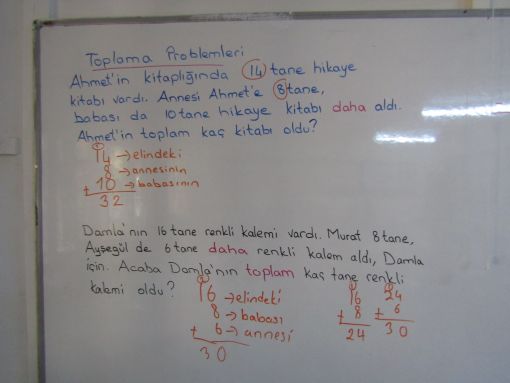 Toplama Problemleri
Ahmet'in kitaplığında 14 tane hikaye
kitabı vardı. Annesi Ahmet'e 8 tane,
babası da 10 tane hikaye kitabı daha aldı.
Ahmet'in toplam kaç kitabı oldu?
1
14 → elindeki
8 → annesinin
+ 10 → babasının
32
Damla'nın 16 tane renkli kalemi vardı. Murat 8 tane,
Ayşegül de 6 tane daha renkli kalem aldı, Damla
için. Acaba Damla'nın toplam kaç tane renkli
kalemi oldu?
16 → elindeki
8 → babası
+ 6 → annesi
30
16
+ 8
24
24
+ 6
30